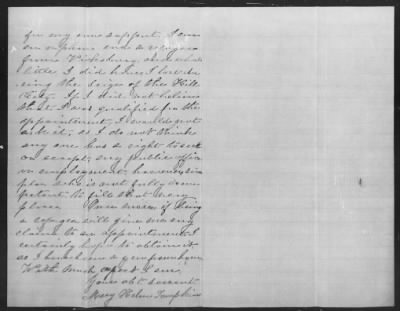 for my own support. I am
an orphan and a refugee
from Vicksburg, and what
little I did have I lost du
ring the seige of the Hill
City. If I did not believe
that I was qualified for the
appointment, I would not
ask it, as I do not think
any one has a right to seek
or accept, any public office
or employment, however sim
ple who is not fully com
petent to fill that very
place. Once more, if being
a refugee will give me any
claims to an appointment, I
certainly hope to obtain it
as I have been a
With much respect I am
Yours obt servant
Mary Helen Tompkins